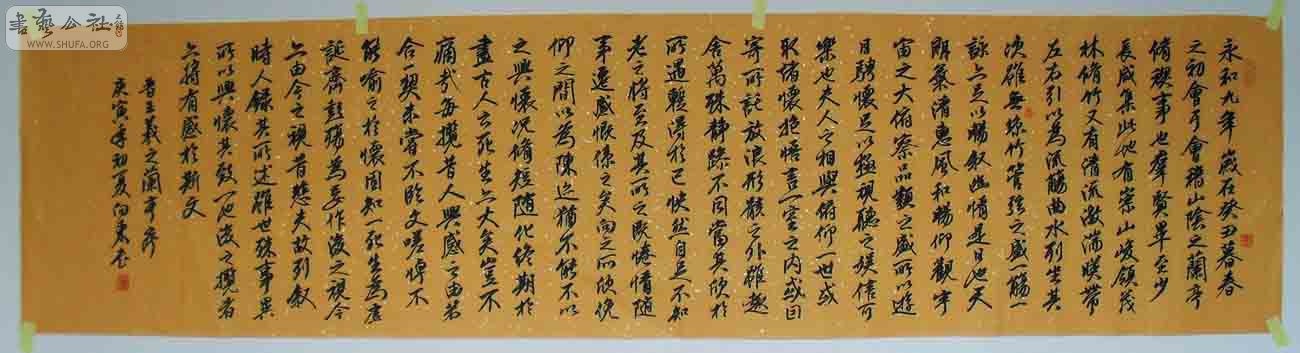 永和九年歲在癸丑暮春
之初會于會稽山陰之蘭亭
脩禊事也羣賢畢至少
長咸集此地有崇山峻領茂
林脩竹又有清流激湍暎帶
左右引以為流觴曲水列坐其
次雖無絲竹管弦之盛一觴一
詠亦足以暢敘幽情是日也天
朗氣清惠風和暢仰觀宇
宙之大俯察品類之盛所以遊
目騁懷足以極視聽之娛信可
樂也夫人之相與俯仰一世或
取諸懷抱悟言一室之内或因
寄所託放浪形骸之外雖趣
舍萬殊靜躁不同當其欣於
所遇暫得於己快然自足不知
老之將至及其所之既惓情隨
事遷感慨係之矣向之所欣俛
仰之間以為陳迹猶不能不以
之興懷況脩短隨化終期於
盡古人云死生亦大矣豈不
痛哉每攬昔人興感之由若
合一契未嘗不臨文嗟悼不
能喻之於懷固知一死生為虛
誕齊彭殤為妄作後之視今
亦由今之視昔悲夫故列敘
時人錄其所述雖世殊事異
所以興懷其致一也後之攬者
亦將有感於斯文
晉王羲之蘭亭序
庚寅年初夏向東書
書藝公社
WWW.SHUFA.ORG